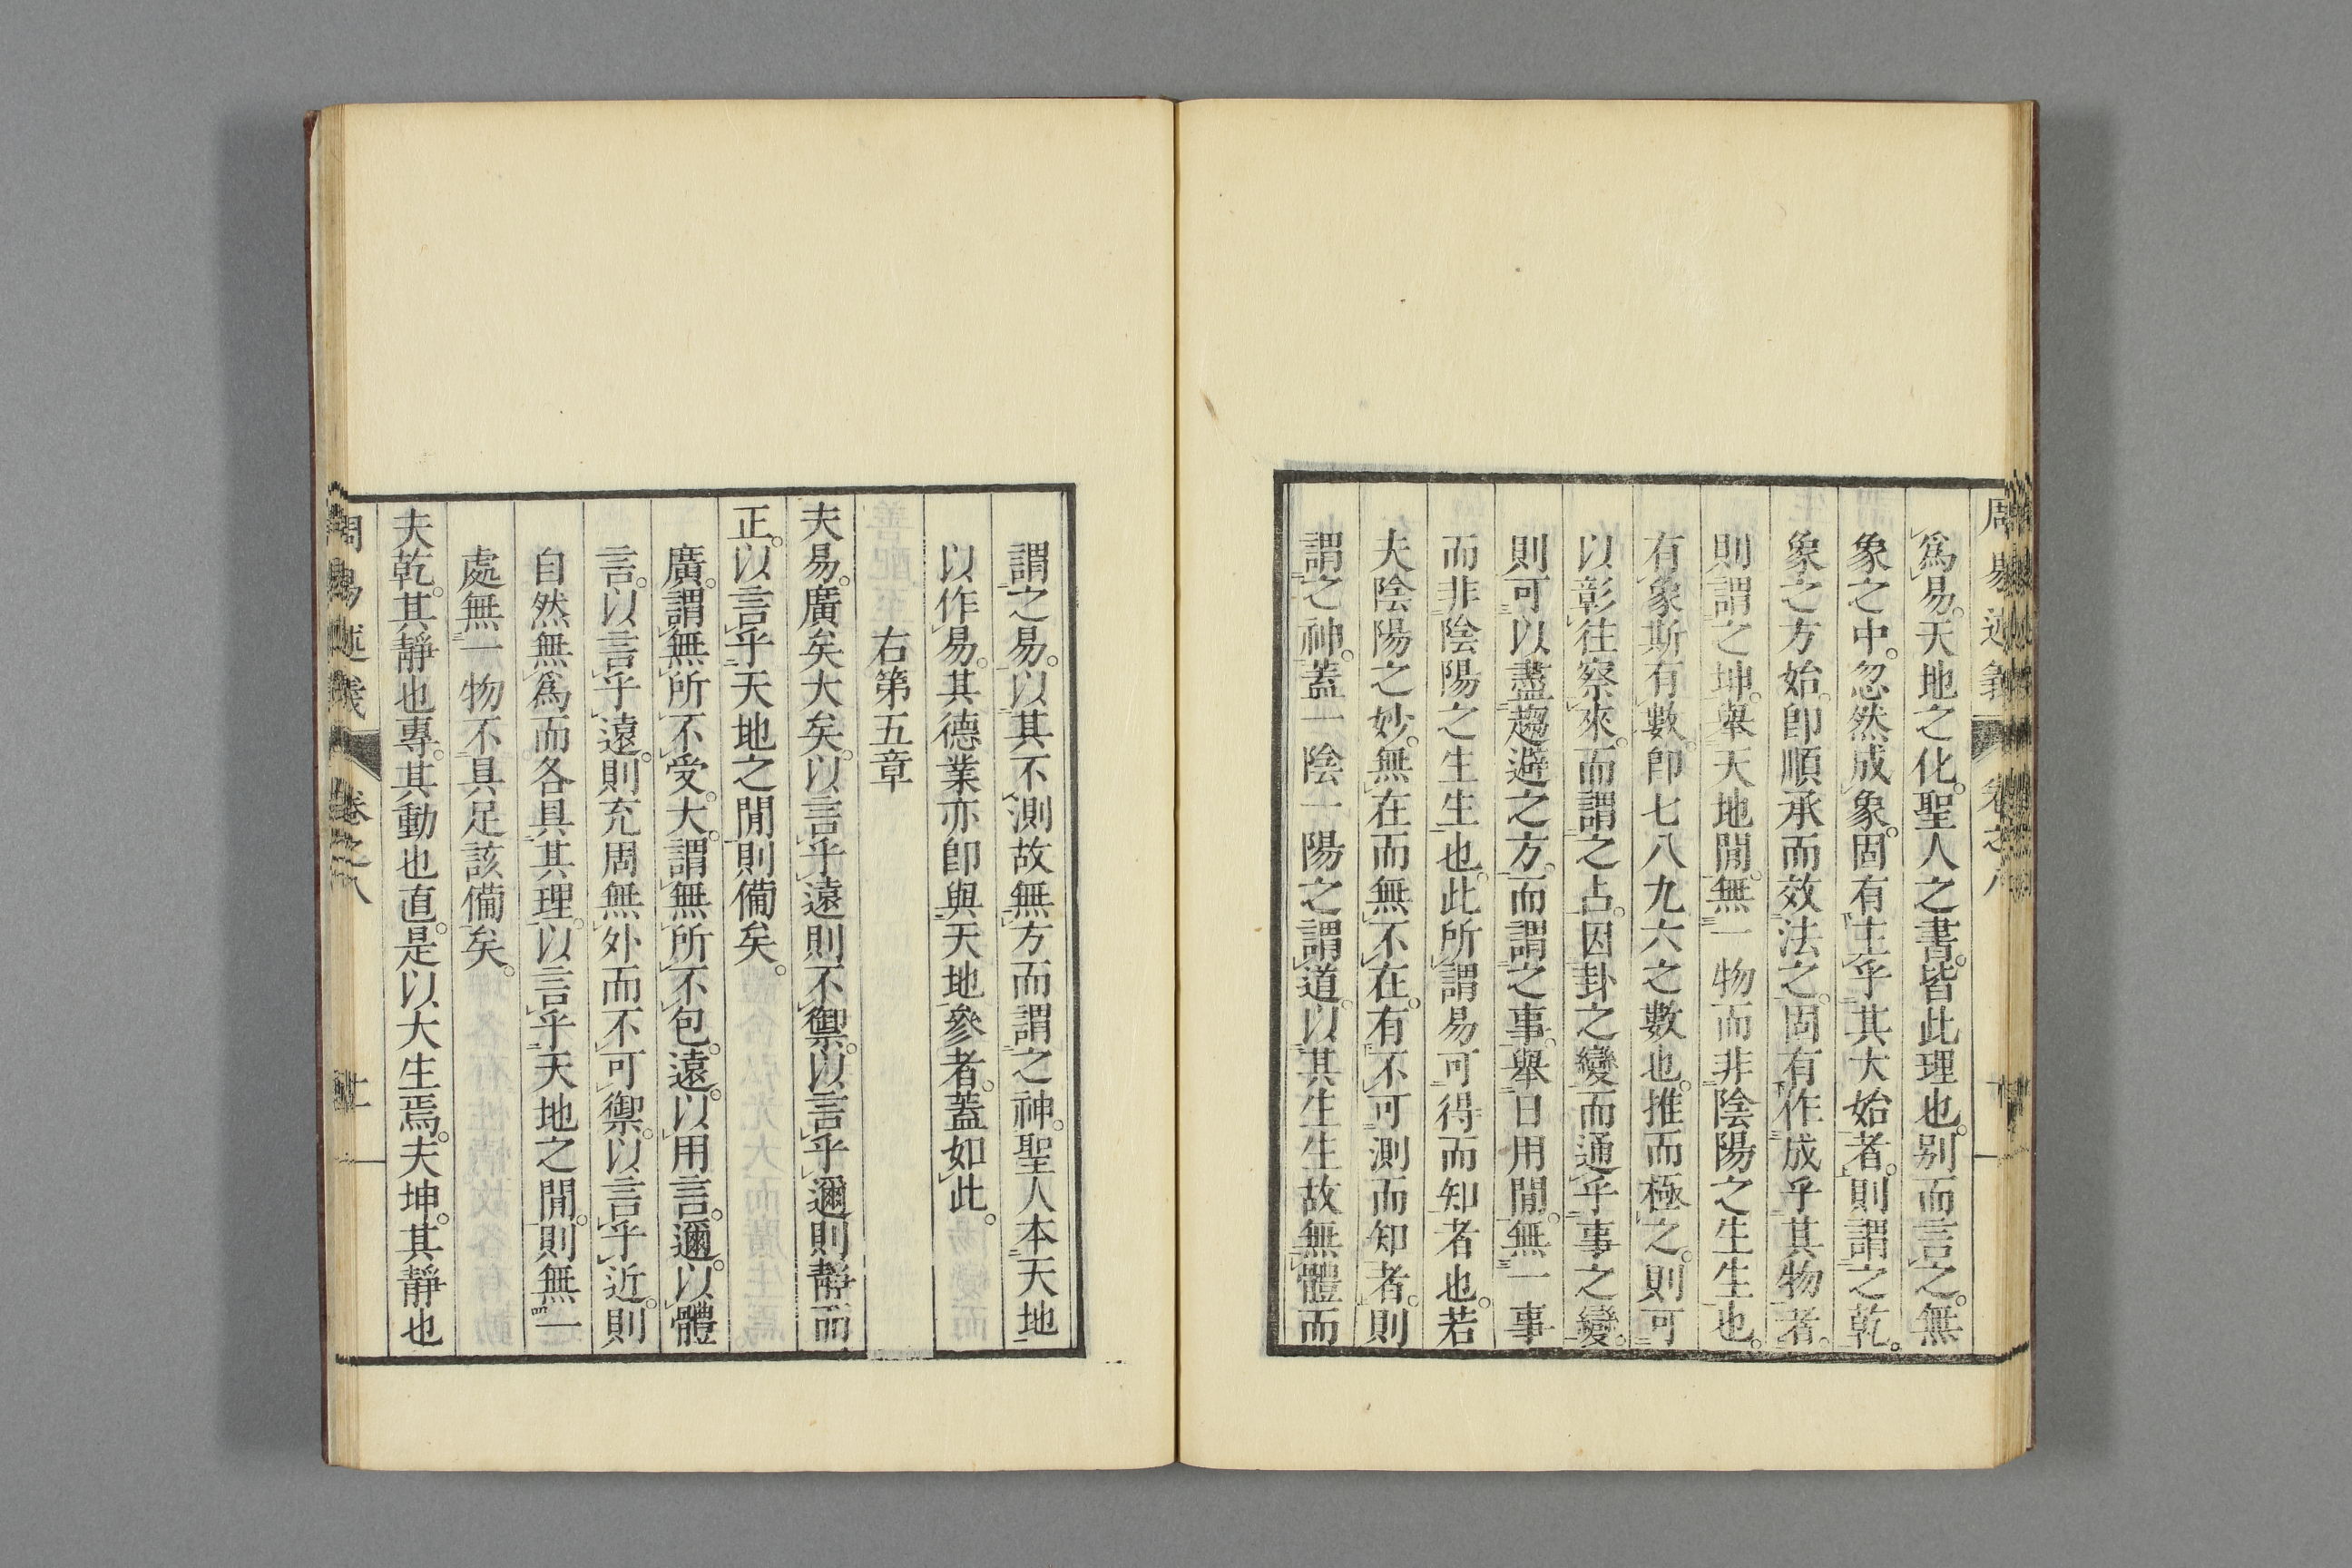 周易述義 卷之八
爲易。天地之化。聖人之書。皆此理也。别而言之。無
象之中。忽然成象。固有主乎其大始者。則謂之乾。
象之方始。卽順承而效法之。固有作成乎其物者。
則謂之坤。舉天地閒。無一物而非陰陽之生生也。
有象斯有數。卽七八九六之數也。推而極之。則可
以彰往察來。而謂之占。因卦之變而通乎事之變。
則可以盡趨避之方。而謂之事。舉日用閒。無一事
而非陰陽之生生也。此所謂易可得而知者也。若
夫陰陽之妙。無在而無不在。有不可測而知者。則
謂之神。蓋一陰一陽之謂道。以其生生故無體而
謂之易。以其不測故無方而謂之神。聖人本天地
以作易。其德業亦卽與天地參者。蓋如此。
右第五章
夫易。廣矣大矣。以言乎遠則不禦。以言乎邇則靜而
正。以言乎天地之閒則備矣。
廣。謂無所不受。大。謂無所不包。遠。以用言。邇。以體
言。以言乎遠。則充周無外而不可禦。以言乎近。則
自然無爲而各具其理。以言乎天地之閒。則無一
處無一物不具足該備矣。
夫乾。其靜也專。其動也直。是以大生焉。夫坤。其靜也
周易述義 卷之八